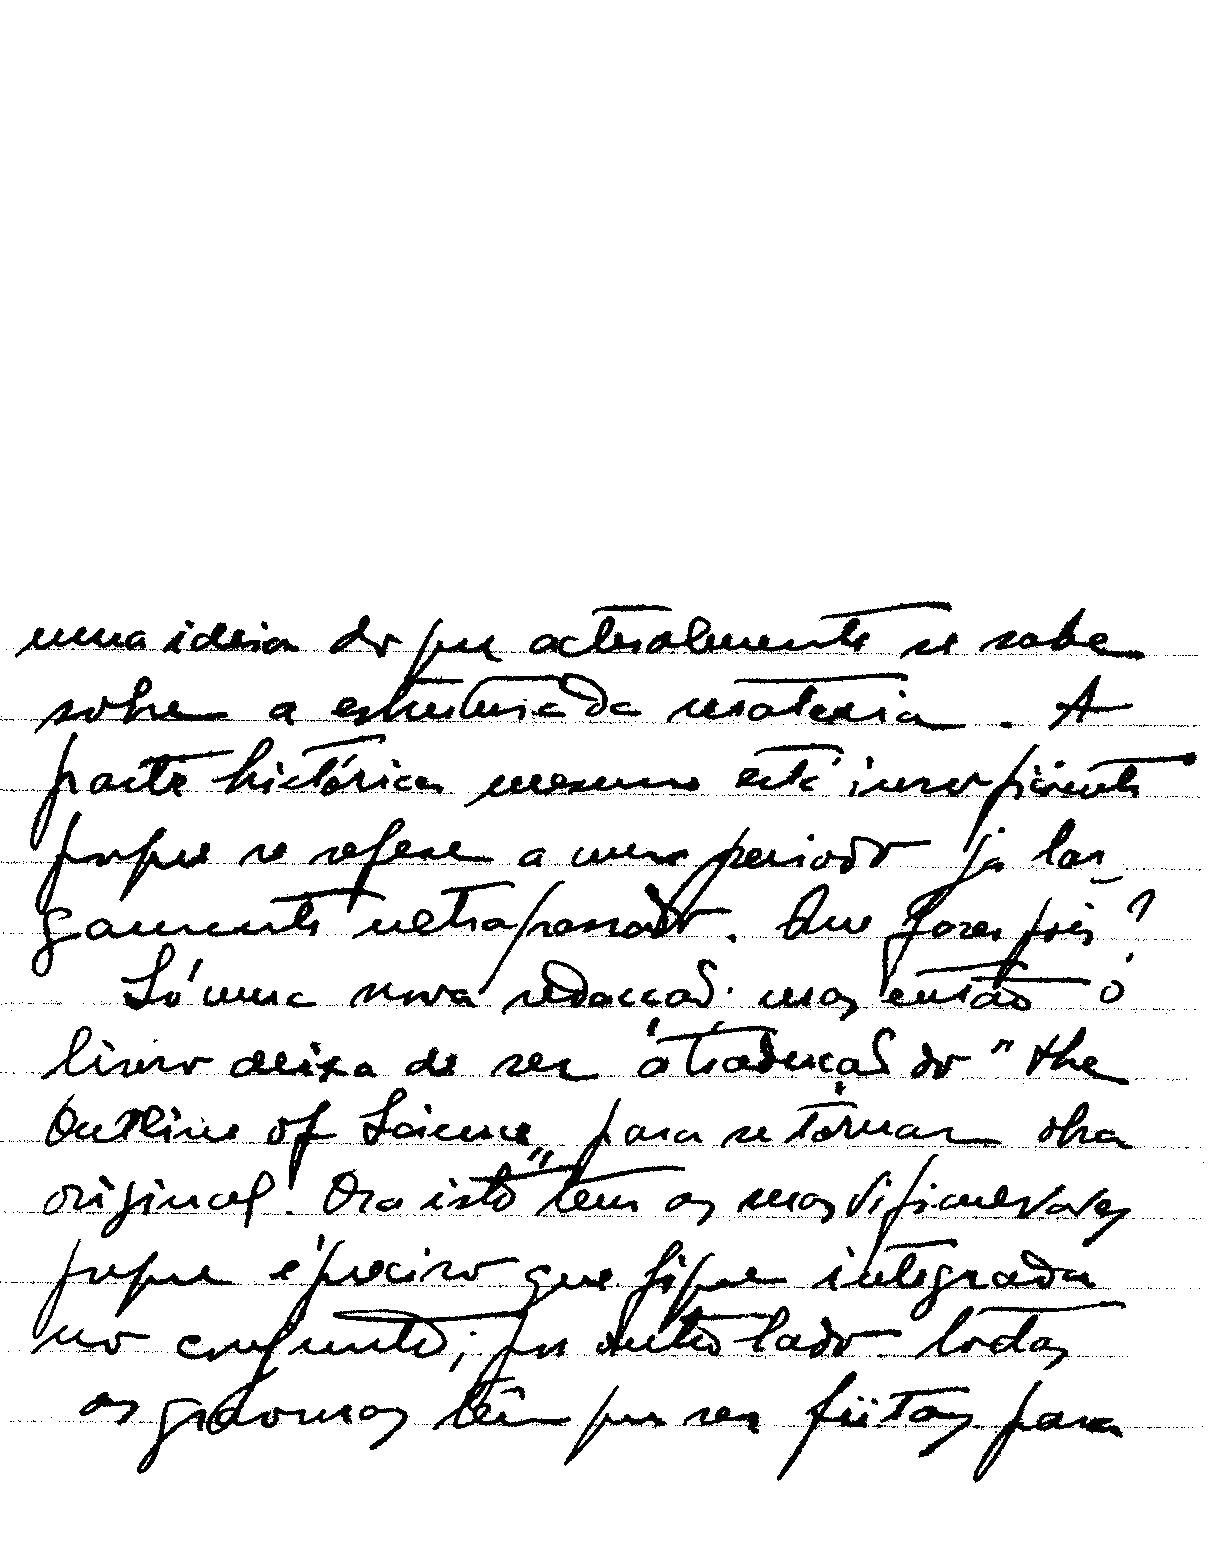 uma ideia do que actualmente se sabe
sobre a estrutura da materia. A
parte histórica mesmo está insuficiente
porque se refere a um periodo já lar
gamente ultrapassado. Que fazer pois?
Só uma nova redacção. mas então o
livro deixa de ser a tradução do "the
Outline of Science" para se tornar obra
original. Ora isto tem as suas dificuldades
porque é preciso que fique integrada
no conjunto; por outro lado todas
as gravuras têm que ser feitas para